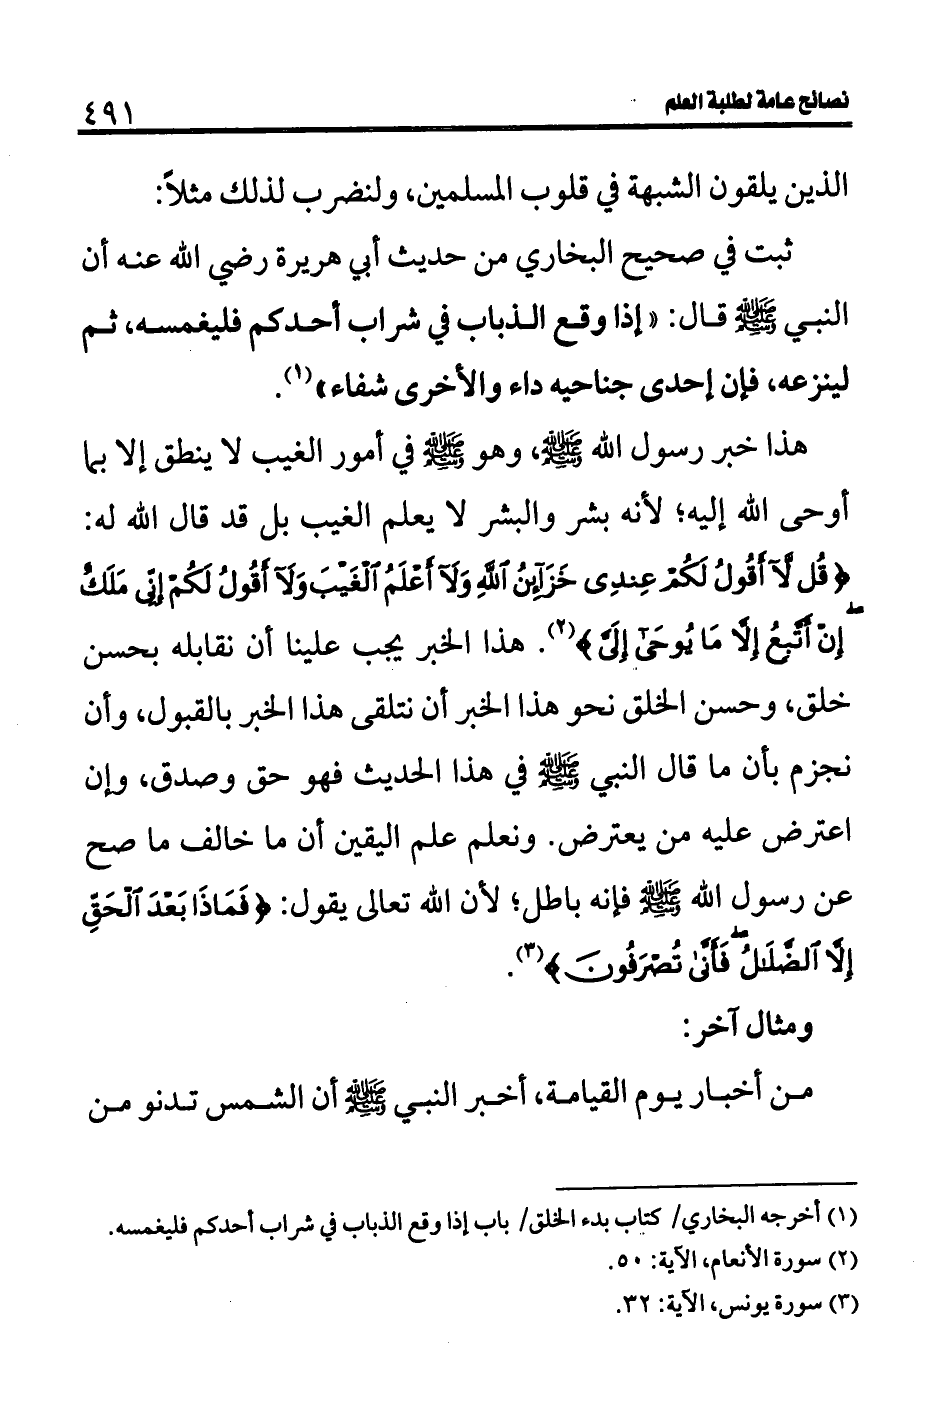 نصائح عامة لطلبة العلم ٤٩١
الذين يلقون الشبهة في قلوب المسلمين، ولنضرب لذلك مثلاً:
ثبت في صحيح البخاري من حديث أبي هريرة رضي الله عنه أن
النبي ﷺ قال: «إذا وقع الذباب في شراب أحدكم فليغمسه، ثم
لينزعه، فإن إحدى جناحيه داء والأخرى شفاء»(١).
هذا خبر رسول الله ﷺ، وهو ﷺ في أمور الغيب لا ينطق إلا بما
أوحى الله إليه؛ لأنه بشر والبشر لا يعلم الغيب بل قد قال الله له:
﴿ قُل لَّآ أَقُولُ لَكُمْ عِندِى خَزَآئِنُ ٱللَّهِ وَلَآ أَعْلَمُ ٱلْغَيْبَ وَلَآ أَقُولُ لَكُمْ إِنِّى مَلَكٌ
إِنْ أَتَّبِعُ إِلَّا مَا يُوحَىٰٓ إِلَىَّ ﴾(٢). هذا الخبر يجب علينا أن نقابله بحسن
خلق، وحسن الخلق نحو هذا الخبر أن نتلقى هذا الخبر بالقبول، وأن
نجزم بأن ما قال النبي ﷺ في هذا الحديث فهو حق وصدق، وإن
اعترض عليه من يعترض. ونعلم علم اليقين أن ما خالف ما صح
عن رسول الله ﷺ فإنه باطل؛ لأن الله تعالى يقول: ﴿ فَمَاذَا بَعْدَ ٱلْحَقِّ
إِلَّا ٱلضَّلَـٰلُ ۖ فَأَنَّىٰ تُصْرَفُونَ ﴾(٣).
ومثال آخر:
من أخبار يوم القيامة، أخبر النبي ﷺ أن الشمس تدنو من
(١) أخرجه البخاري/ كتاب بدء الخلق/ باب إذا وقع الذباب في شراب أحدكم فليغمسه.
(٢) سورة الأنعام، الآية: ٥٠.
(٣) سورة يونس، الآية: ٣٢.